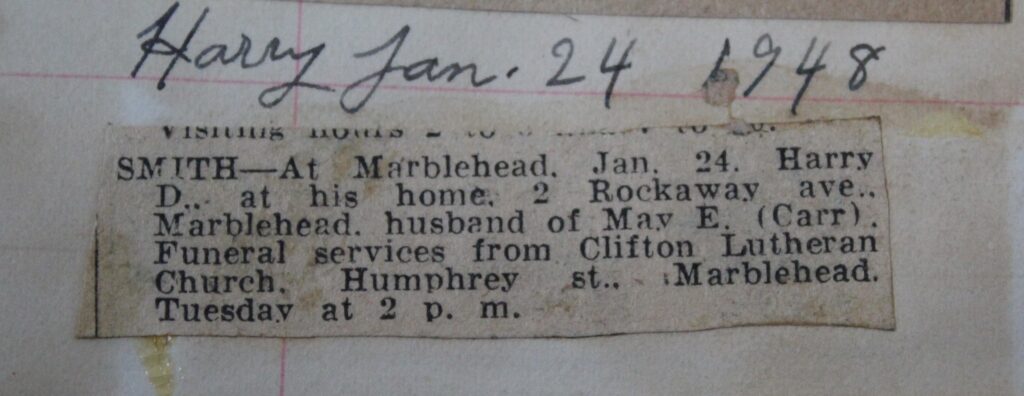 Harry Jan. 24 1948
Visiting hours 2 to
SMITH—At Marblehead, Jan. 24, Harry
D., at his home, 2 Rockaway ave.,
Marblehead, husband of May E. (Carr).
Funeral services from Clifton Lutheran
Church, Humphrey st., Marblehead,
Tuesday at 2 p. m.